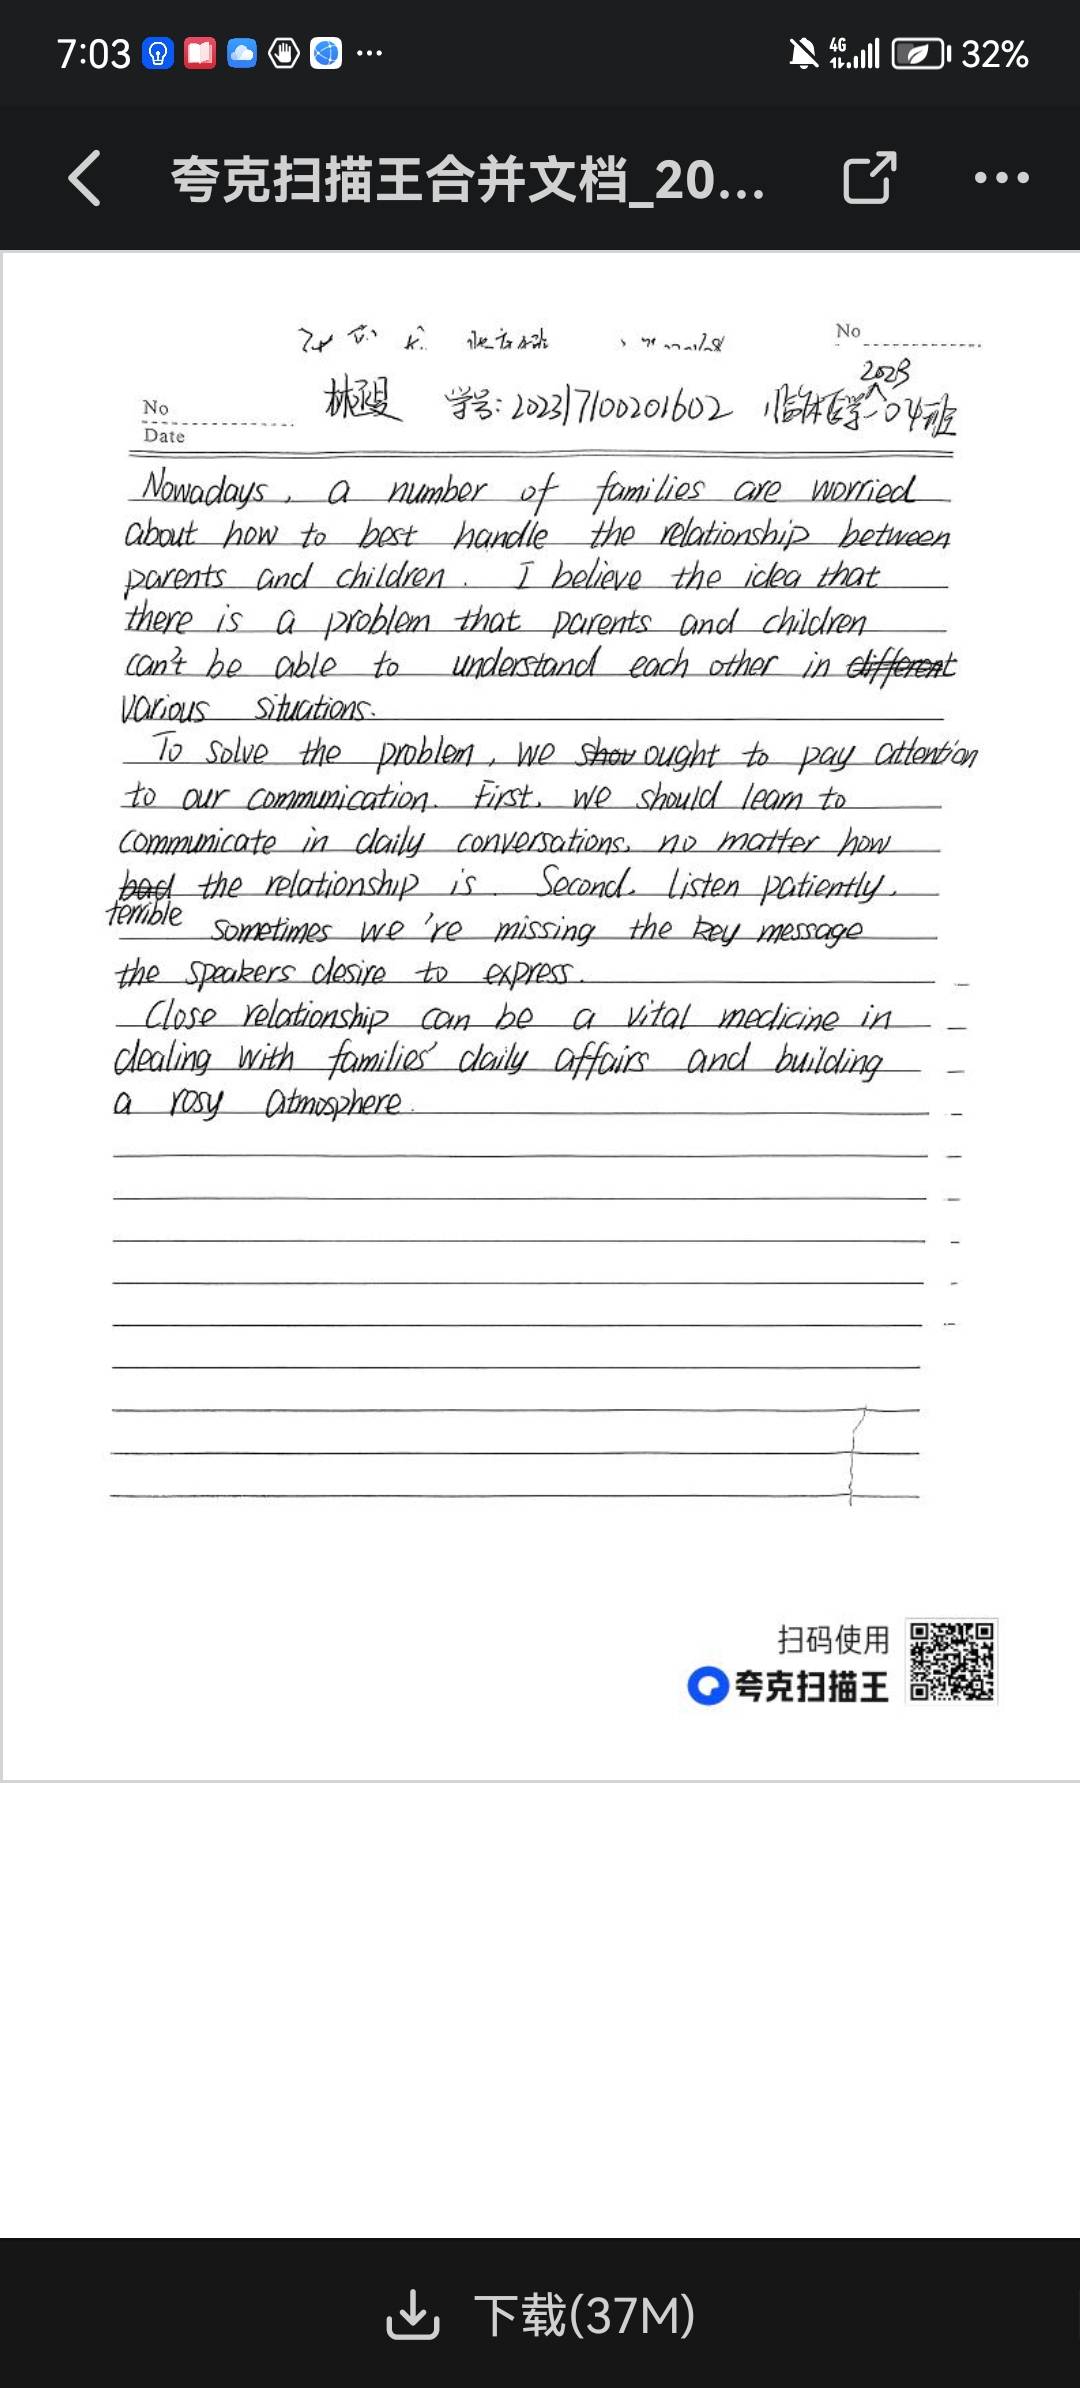 7:03
4G
32%
夸克扫描王合并文档_20...
No
2023
林 学号:202317100201602 临床医学 04班
No
Date
Nowadays, a number of families are worried
about how to best handle the relationship between
parents and children. I believe the idea that
there is a problem that parents and children
can't be able to understand each other in different
various situations.
To solve the problem, we shou ought to pay attention
to our communication. First, we should learn to
communicate in daily conversations, no matter how
bad the relationship is. Second, listen patiently.
terrible sometimes we're missing the key message
the speakers desire to express.
Close relationship can be a vital medicine in
dealing with families' daily affairs and building
a rosy atmosphere.
扫码使用
夸克扫描王
下载(37M)